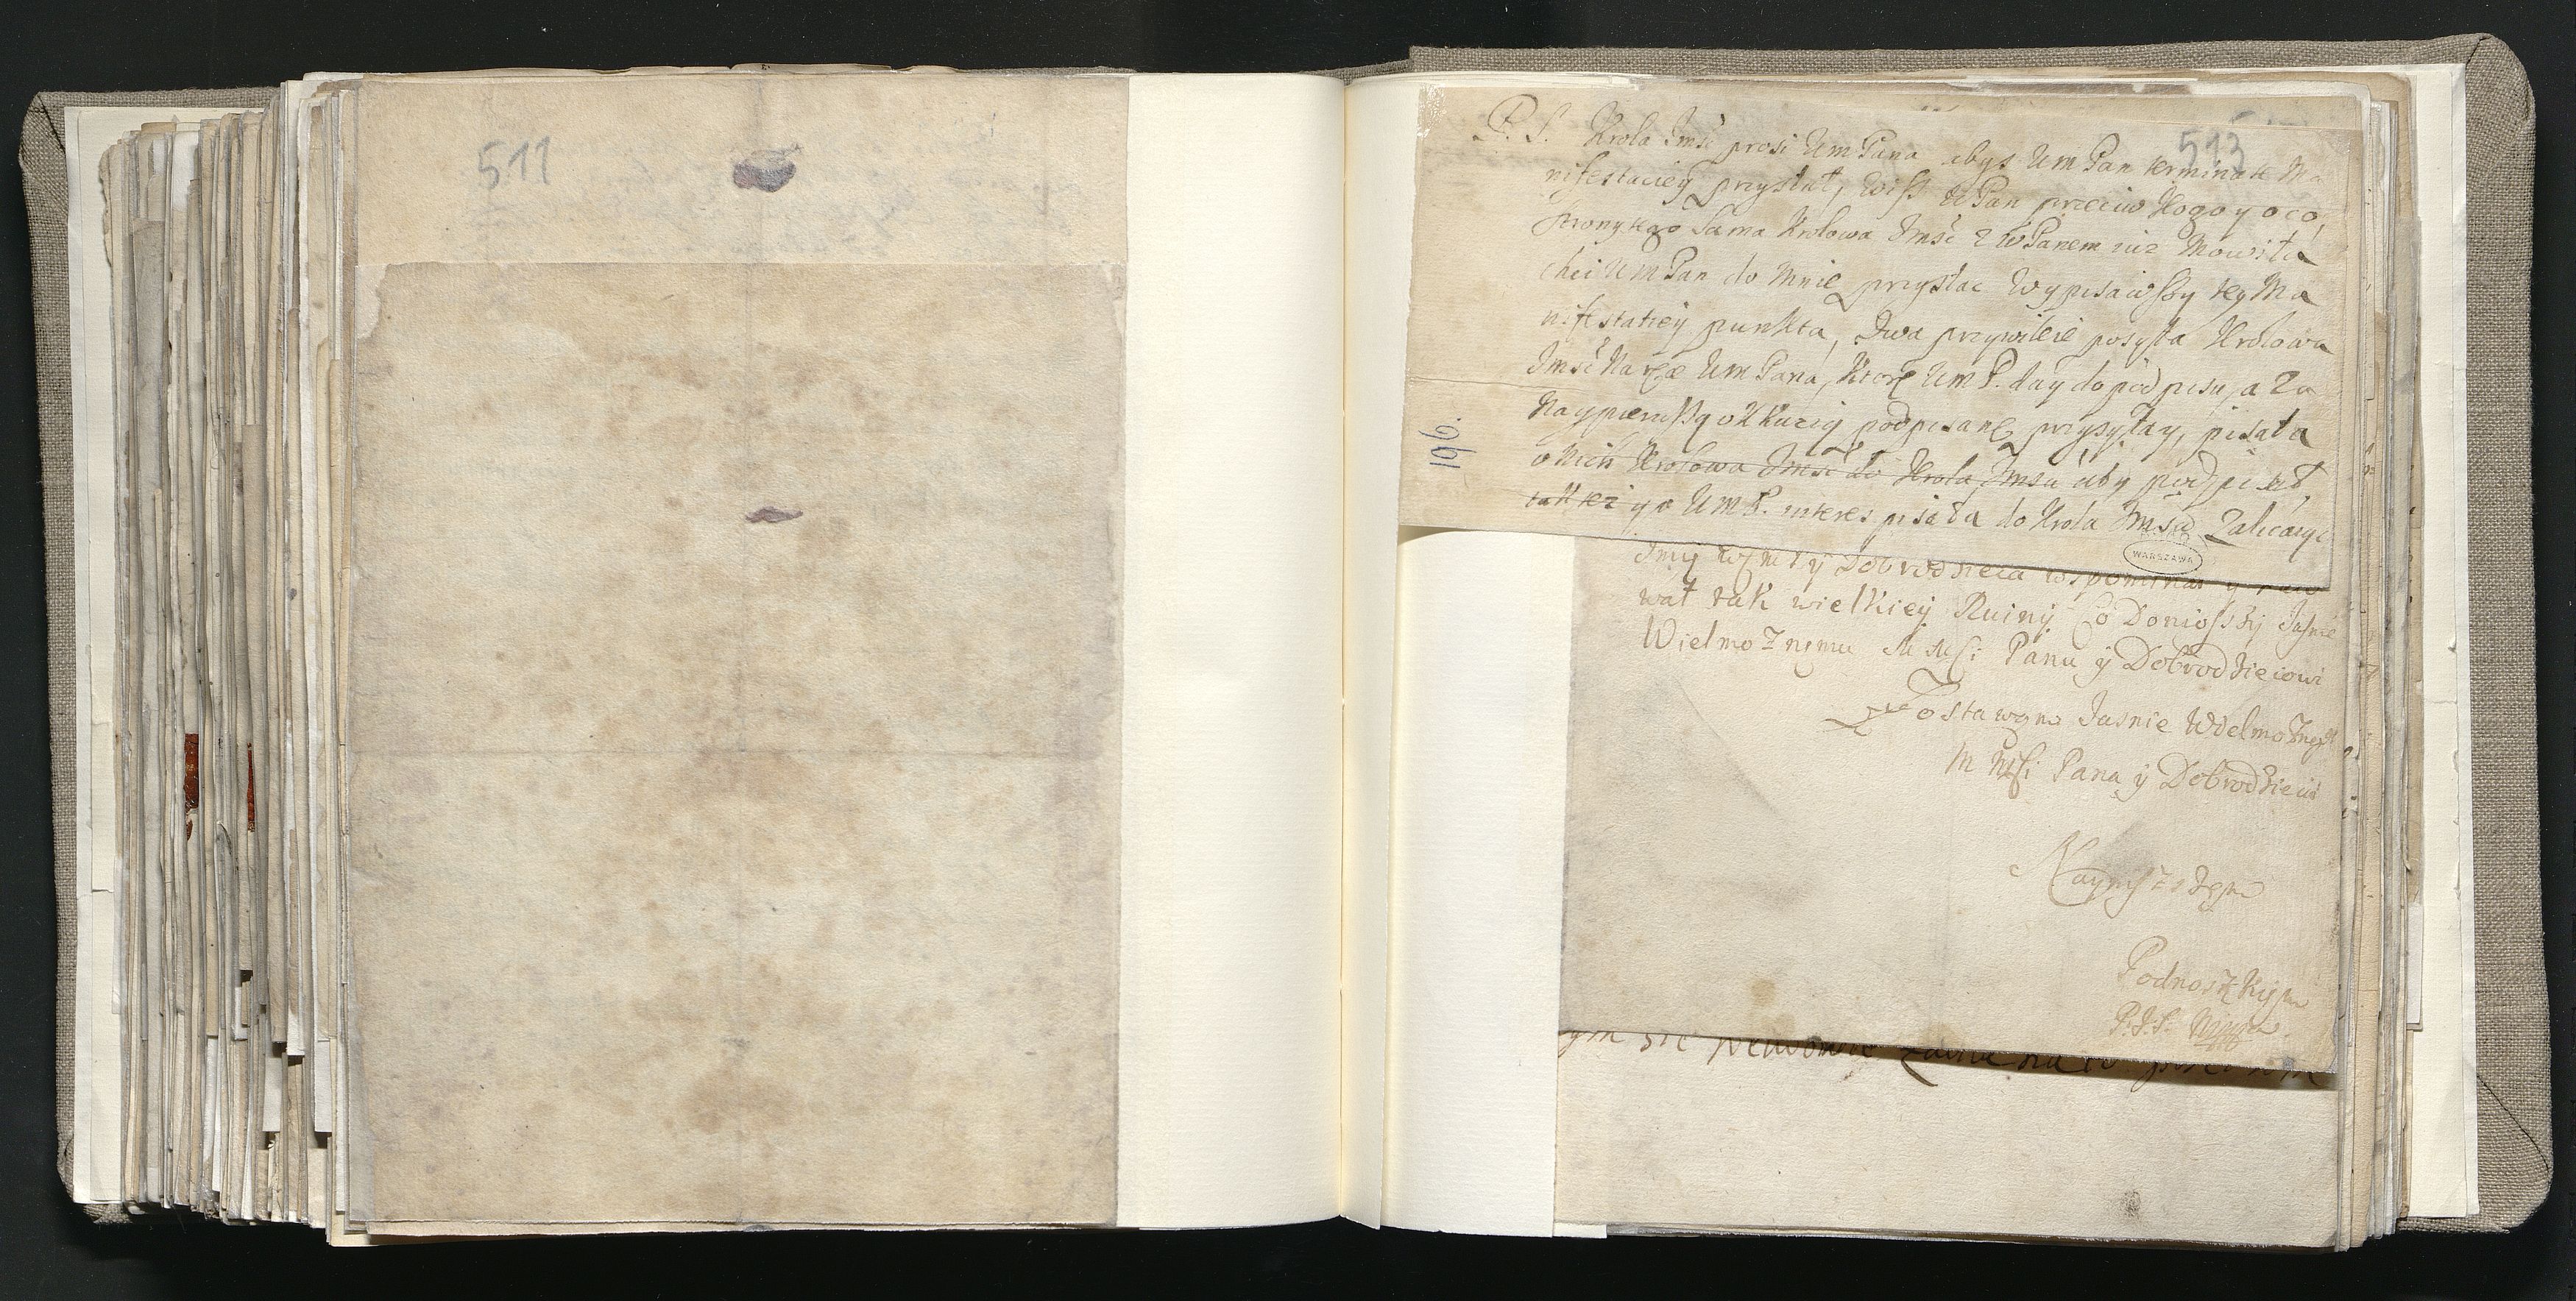 511
513
P. S. Krola Jmsć prosi UmPana abys UmPan terminate Ma
nifestaciey przysłał, wiesz WPan przeciw Kogo y oco,
strony tego sama Krolowa Jmsć z WPanem iuz mowiła
chci UmPan do mnie przysłac wypisawszy tey Ma
nifestatiey punkta, Dwa przywileie posyła Krolowa
Jmsć Na ręce UmPana, Ktore UmP. day do podpisu, a za
Naypierwszą okkazią podpisane przysyłay, pisała
o nich Krolowa Jmsć do Krola Jmsci aby podpisał,
tak tez y o UmP. interes pisała do Krola Jmsci Zalicaiąc
196.
WARSZAWA
y Dobrodzieia wspominał y
wał tak wielkiey Ruiny Co Donioszszy Jasnie
Wielmoznemu M Msci Panu y Dobrodzieiowi
Zostawam Jasnie Wielmoznego
M Msci Pana y Dobrodzieia
Naynizszym
Podnoszkiem
P.J.S.
ym sie